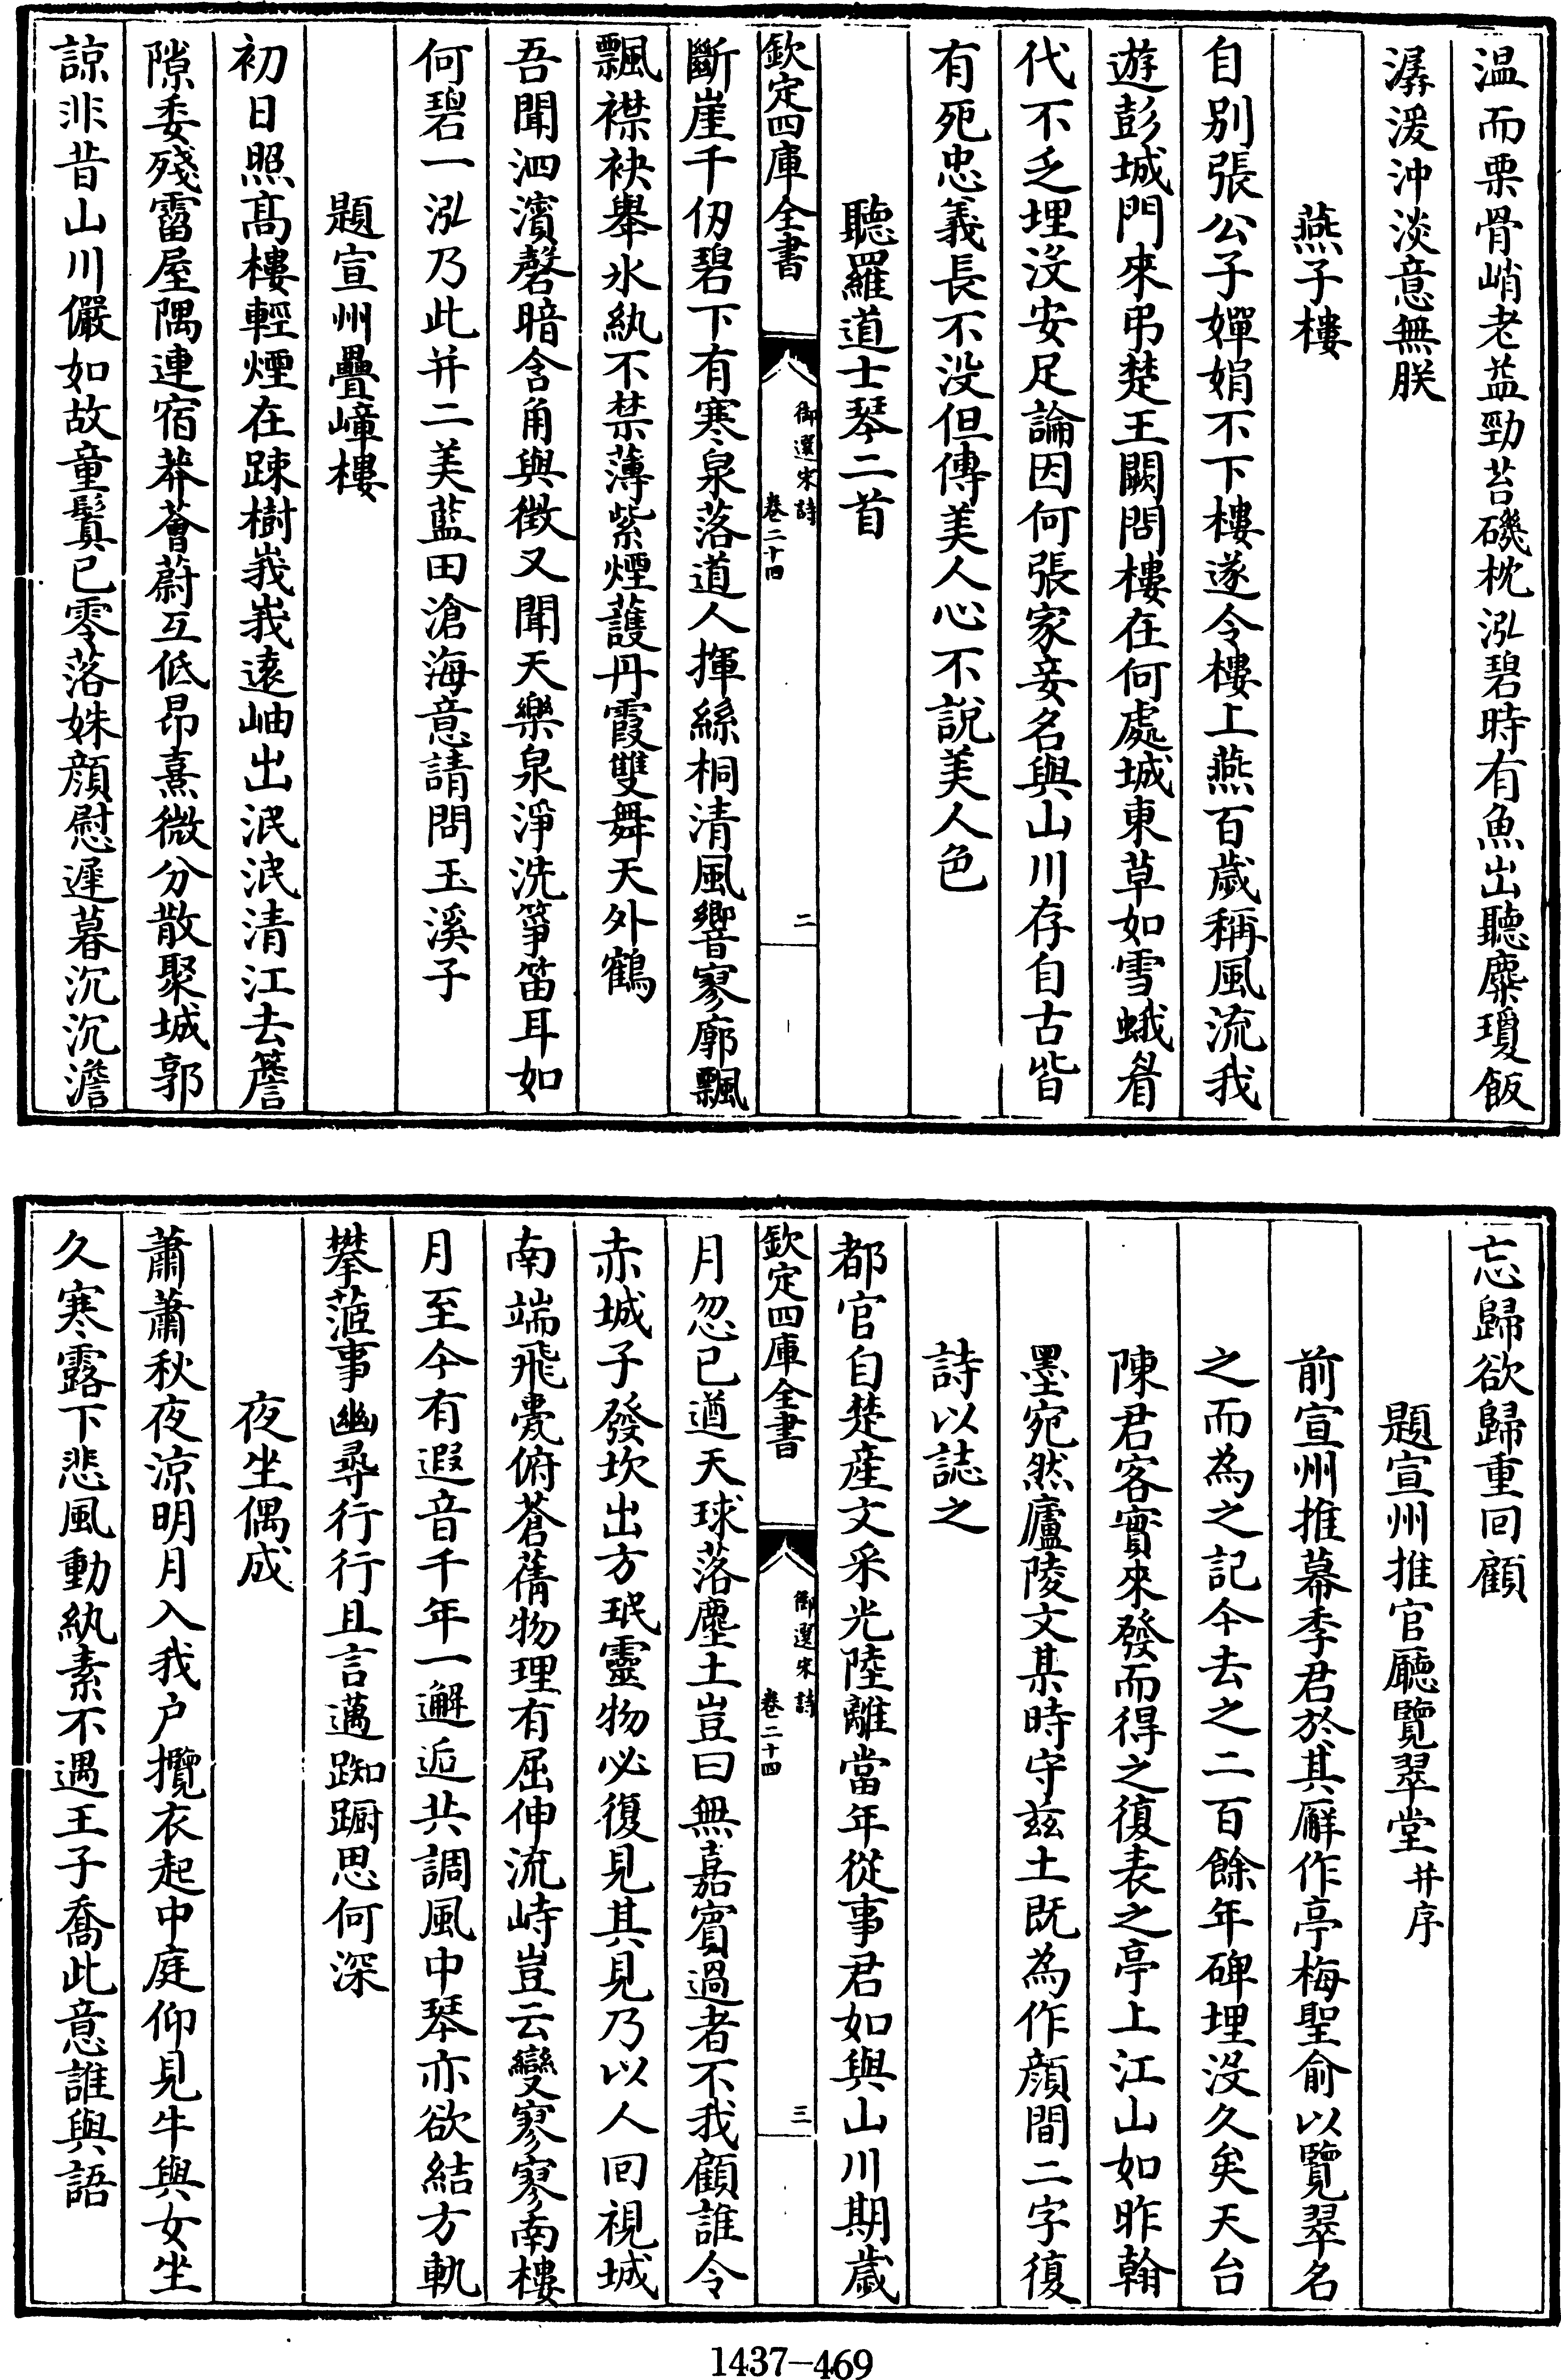 温而栗骨峭老益勁苔磯枕泓碧時有魚出聽麋瓊飯
潺湲沖淡意無朕
燕子樓
自别張公子嬋娟不下樓遂令樓上燕百歲稱風流我
遊彭城門來弔楚王闕問樓在何處城東草如雪蛾眉
代不乏埋沒安足論因何張家妾名與山川存自古皆
有死忠義長不没但傳美人心不說美人色
聽羅道士琴二首
欽定四庫全書
御選宋詩
卷二十四
二
斷崖千仞碧下有寒泉落道人揮絲桐清風響寥廓飄
飄襟袂舉氷紈不禁薄紫煙護丹霞雙舞天外鶴
吾聞泗濱磬暗含角與徴又聞天樂泉淨洗箏笛耳如
何碧一泓乃此并二美藍田滄海意請問玉溪子
題宣州疊嶂樓
初日照髙樓輕煙在踈樹峩峩逺岫出泯泯清江去簷
隙委殘霤屋隅連宿莽薈蔚互低昂熹微分散聚城郭
諒非昔山川儼如故童鬒已零落姝顔慰遲暮沉沉澹
忘歸欲歸重回顧
題宣州推官廳覽翠堂并序
前宣州推幕季君於其廨作亭梅聖俞以覽翠名
之而為之記今去之二百餘年碑埋没久矣天台
陳君客實來發而得之復表之亭上江山如昨翰
墨宛然廬陵文某時守兹土既為作顔間二字復
詩以誌之
都官自楚産文采光陸離當年從事君如與山川期歲
欽定四庫全書
御選宋詩
卷二十四
三
月忽已遒天球落塵土豈曰無嘉賓過者不我顧誰令
赤城子發坎出方珉靈物必復見其見乃以人回視城
南端飛甍俯蒼蒨物理有屈伸流峙豈云變寥寥南樓
月至今有遐音千年一邂逅共調風中琴亦欲結方軌
攀蒞事幽尋行行且言邁踟蹰思何深
夜坐偶成
蕭蕭秋夜涼明月入我户攬衣起中庭仰見牛與女坐
久寒露下悲風動紈素不遇王子喬此意誰與語
1437—469